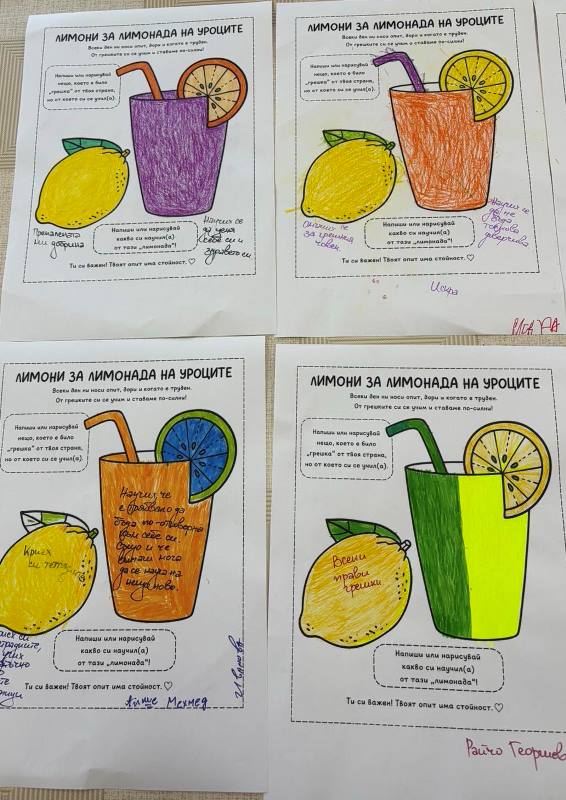 ЛИМОНИ ЗА ЛИМОНАДА НА УРОЦИТЕ
Всеки ден ни носи опит, дори и когато е труден.
От грешките си се учим и ставаме по-силни!
Напиши или нарисувай
нещо, което е било
„грешка“ от твоя страна,
но от което си се учил(а).
Прекалената
ми доброта
Напиши или нарисувай
какво си научил(а)
от тази „лимонада“!
Научих се
да ценя
себе си и
здравето си
Ти си важен! Твоят опит има стойност.
ЛИМОНИ ЗА ЛИМОНАДА НА УРОЦИТЕ
Всеки ден ни носи опит, дори и когато е труден.
От грешките си се учим и ставаме по-силни!
Напиши или нарисувай
нещо, което е било
„грешка“ от твоя страна,
но от което си се учил(а).
за грешния
човек
Напиши или нарисувай
какво си научил(а)
от тази „лимонада“!
Научих се
да не
бъда
толкова
доверчива
Ти си важен! Твоят опит има стойност.
Искра
ЛИМОНИ ЗА ЛИМОНАДА НА УРОЦИТЕ
Всеки ден ни носи опит, дори и когато е труден.
От грешките си се учим и ставаме по-силни!
Напиши или нарисувай
нещо, което е било
„грешка“ от твоя страна,
но от което си се учил(а).
Научих, че
е трябвало да
бъда по-отговорна
към себе си.
и че
винаги мога
да се науча на
нещо ново.
Криех
си
Напиши или нарисувай
какво си научил(а)
от тази „лимонада“!
Ти си важен! Твоят опит има стойност.
Айше Мехмед
ЛИМОНИ ЗА ЛИМОНАДА НА УРОЦИТЕ
Всеки ден ни носи опит, дори и когато е труден.
От грешките си се учим и ставаме по-силни!
Напиши или нарисувай
нещо, което е било
„грешка“ от твоя страна,
но от което си се учил(а).
Всеки
прави
грешки
Напиши или нарисувай
какво си научил(а)
от тази „лимонада“!
Ти си важен! Твоят опит има стойност.
Райчо Георгиев